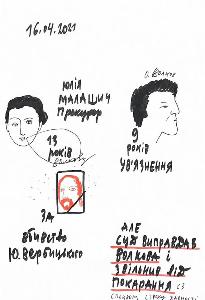 16.04.2021
Юлія
МАЛАШИЧ
Прокурор
13
років
О. Волков
9
років
УВ'ЯЗНЕННЯ
ЗА
вбивство
Ю. Вербицького
АЛЕ
СУД ВИПРАВДАВ
ВОЛКОВА і
ЗВІЛЬНИВ ВІД
ПОКАРАННЯ